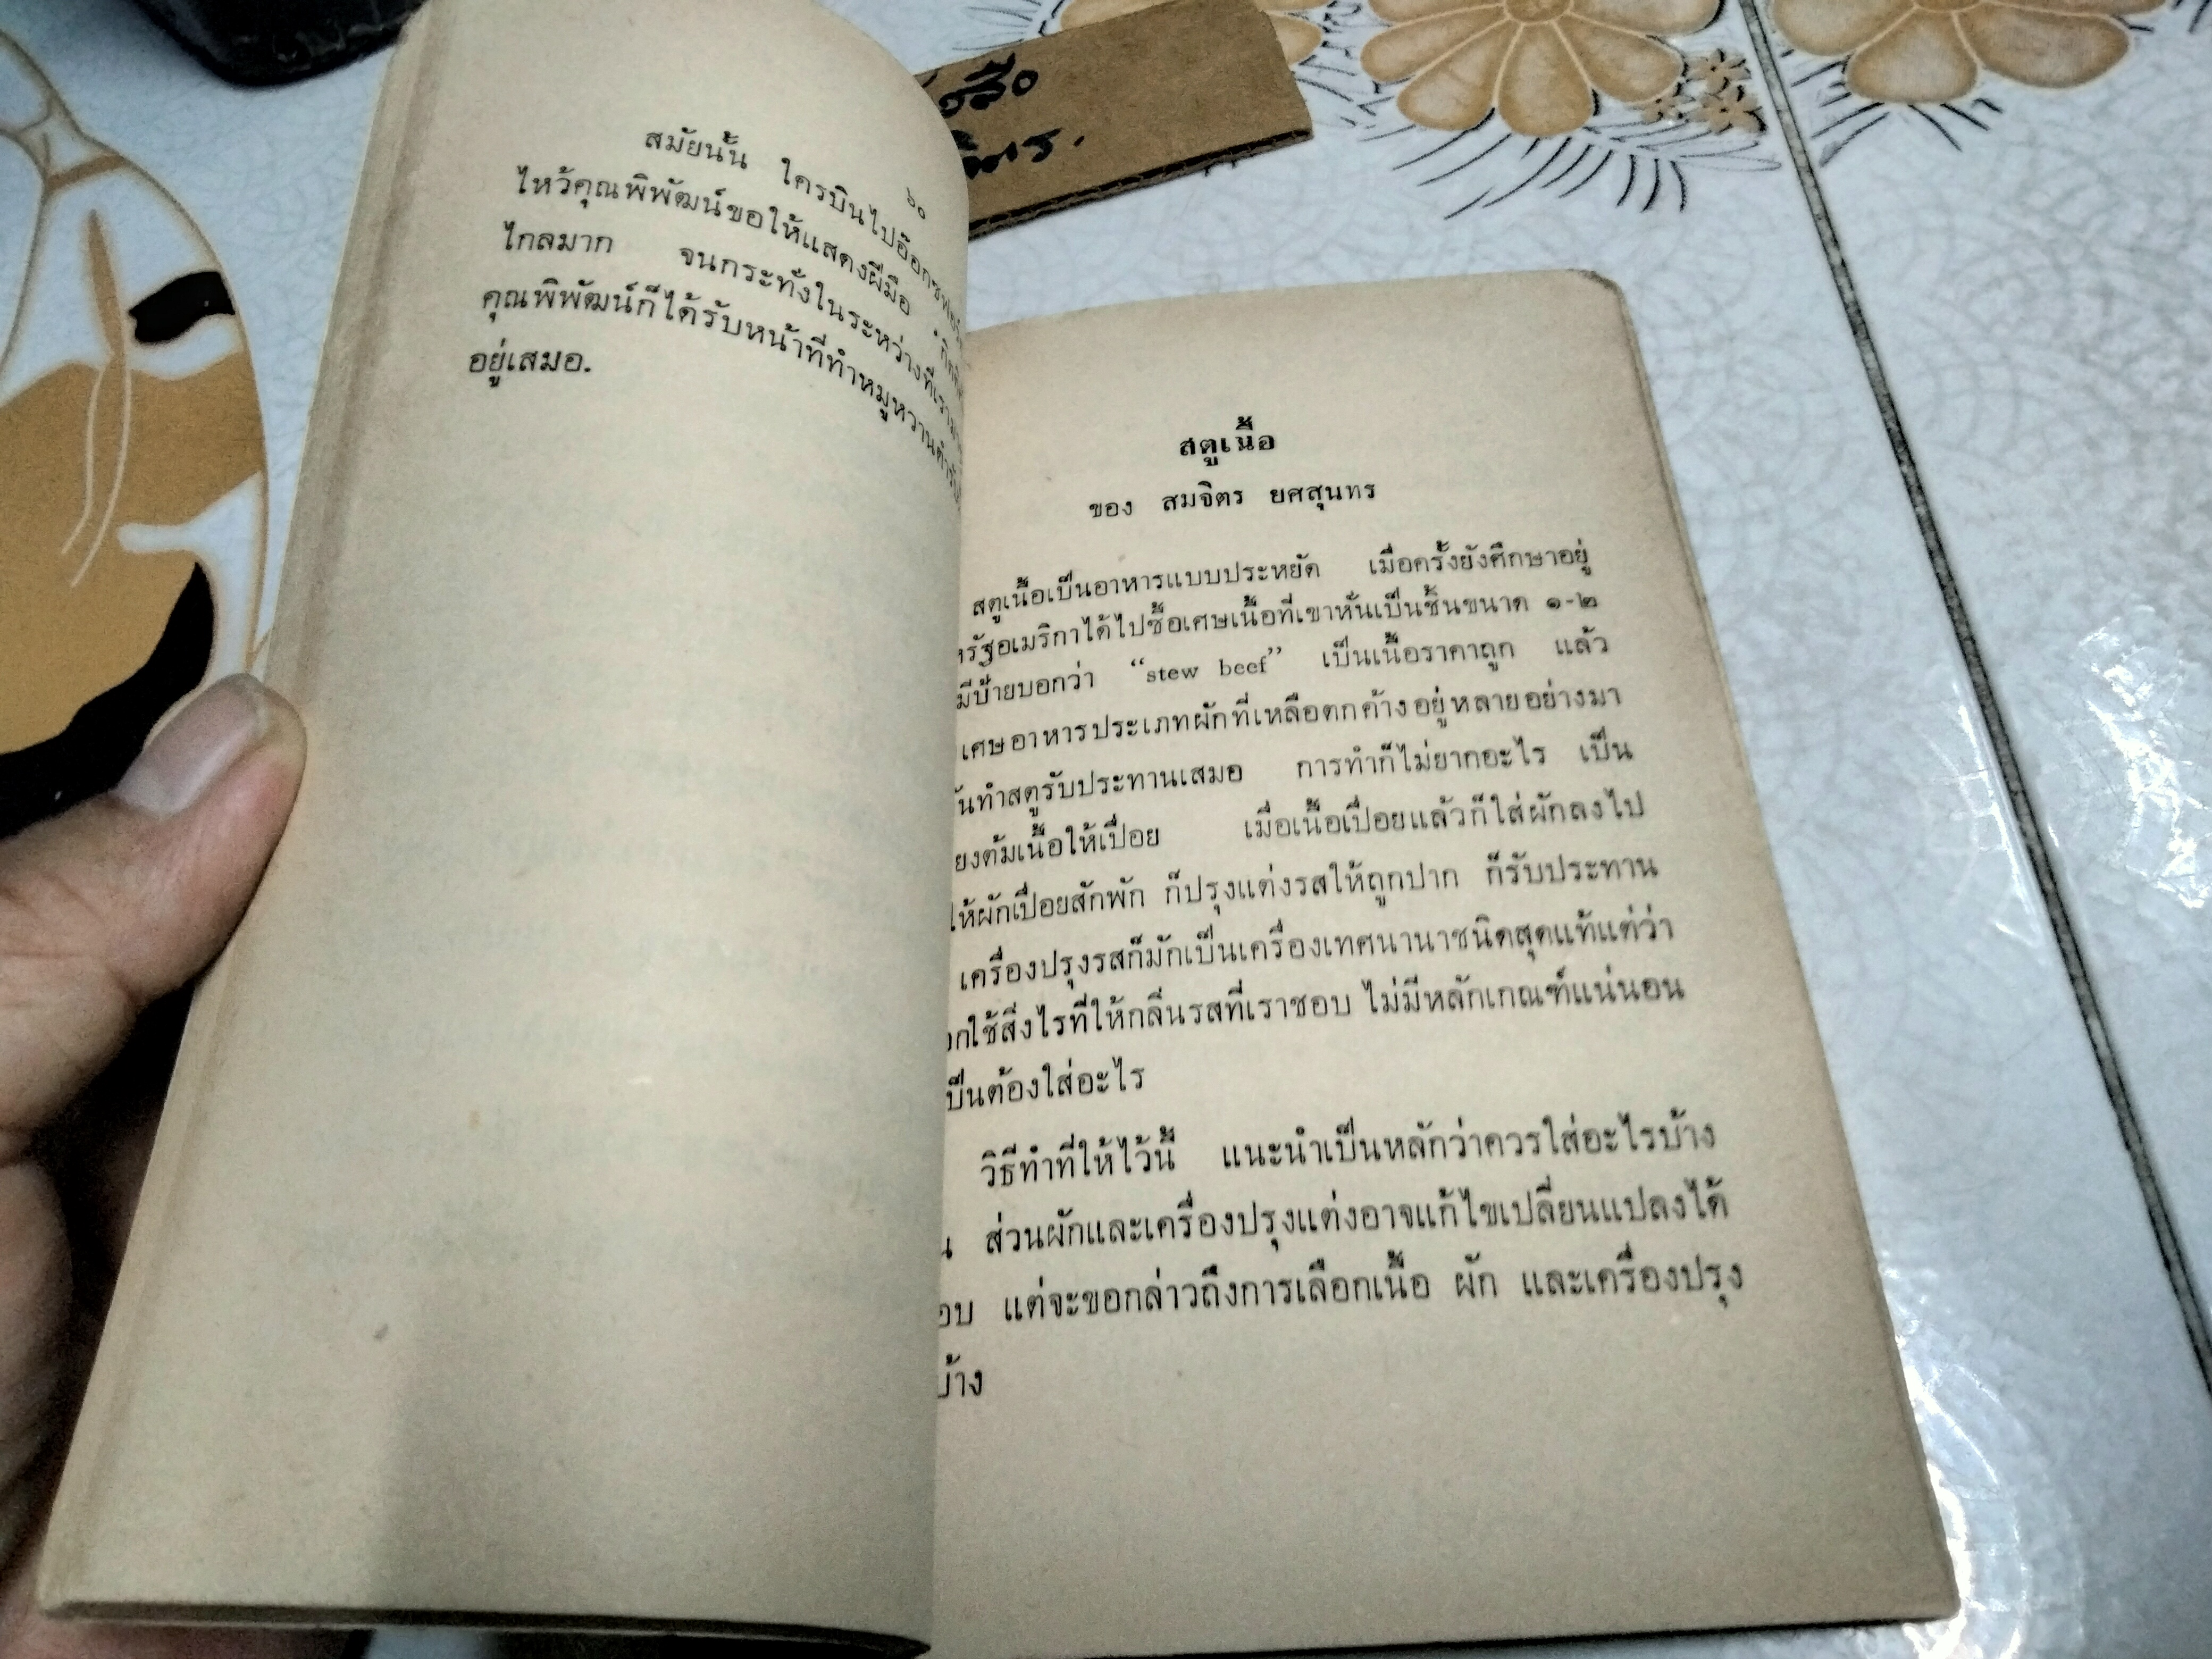 ๖๐
สมัยนั้น ใครบินไปอ๊อกซฟอร์ด
ไหว้คุณพิพัฒน์ขอให้แสดงฝีมือ
ไกลมาก จนกระทั่งในระหว่างที่เรา
คุณพิพัฒน์ก็ได้รับหน้าที่ทำหมูหวานตำรับ
อยู่เสมอ.
สตูเนื้อ
ของ สมจิตร ยศสุนทร
สตูเนื้อเป็นอาหารแบบประหยัด เมื่อครั้งยังศึกษาอยู่
หรัฐอเมริกาได้ไปซื้อเศษเนื้อที่เขาหั่นเป็นชิ้นขนาด ๑-๒
มีป้ายบอกว่า “stew beef” เป็นเนื้อราคาถูก แล้ว
เศษอาหารประเภทผักที่เหลือตกค้างอยู่หลายอย่างมา
นทำสตูรับประทานเสมอ การทำก็ไม่ยากอะไร เป็น
ยงต้มเนื้อให้เปื่อย เมื่อเนื้อเปื่อยแล้วก็ใส่ผักลงไป
ให้ผักเปื่อยสักพัก ก็ปรุงแต่งรสให้ถูกปาก ก็รับประทาน
เครื่องปรุงรสก็มักเป็นเครื่องเทศนานาชนิดสุดแท้แต่ว่า
กใช้สิ่งไรที่ให้กลิ่นรสที่เราชอบ ไม่มีหลักเกณฑ์แน่นอน
ป็นต้องใส่อะไร
วิธีทำที่ให้ไว้นี้ แนะนำเป็นหลักว่าควรใส่อะไรบ้าง
น ส่วนผักและเครื่องปรุงแต่งอาจแก้ไขเปลี่ยนแปลงได้
อบ แต่จะขอกล่าวถึงการเลือกเนื้อ ผัก และเครื่องปรุง
บ้าง